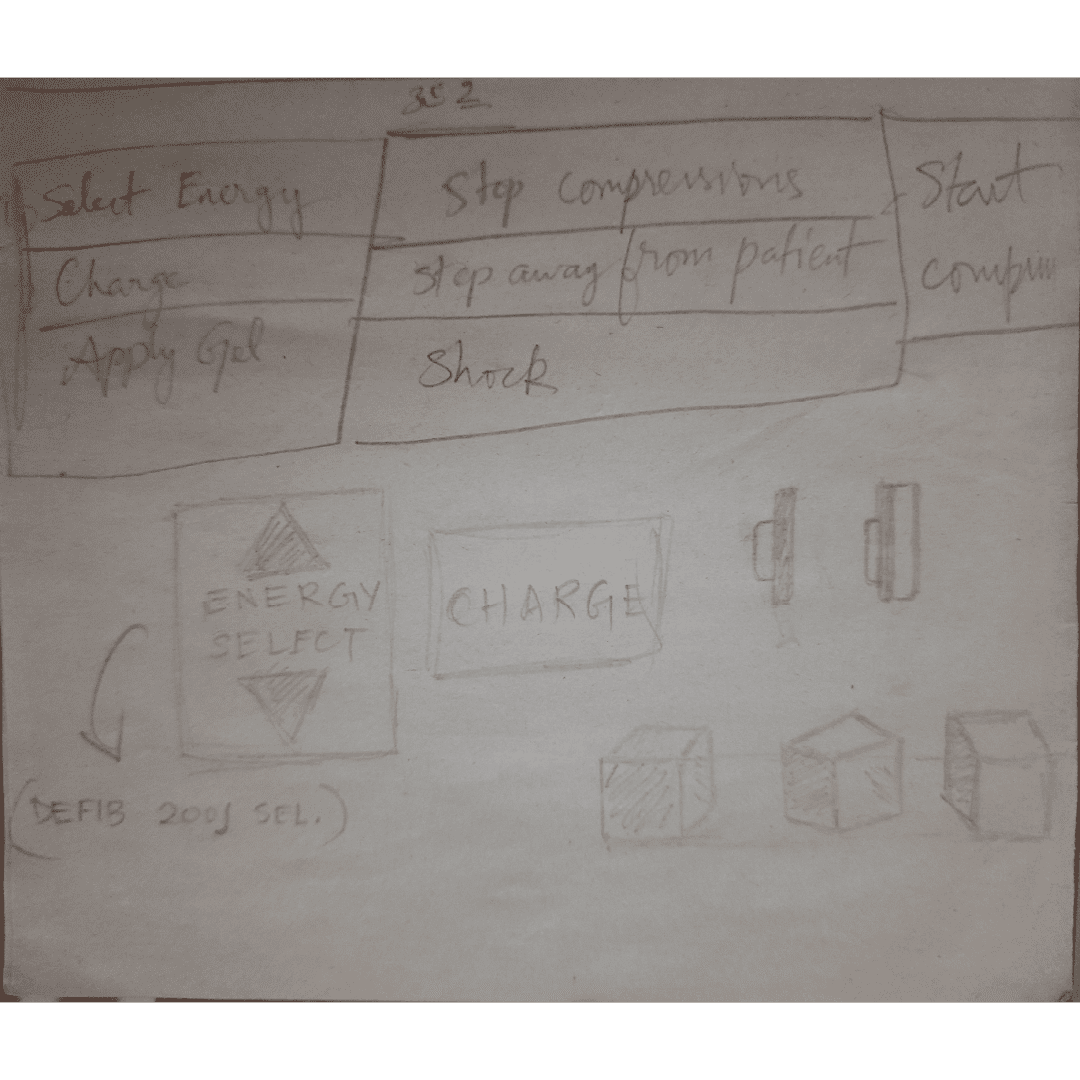 Select Energy
Charge
Apply Gel
Stop compressions
step away from patient
Shock
Start
ENERGY
SELECT
CHARGE
(DEFIB 200J SEL.)